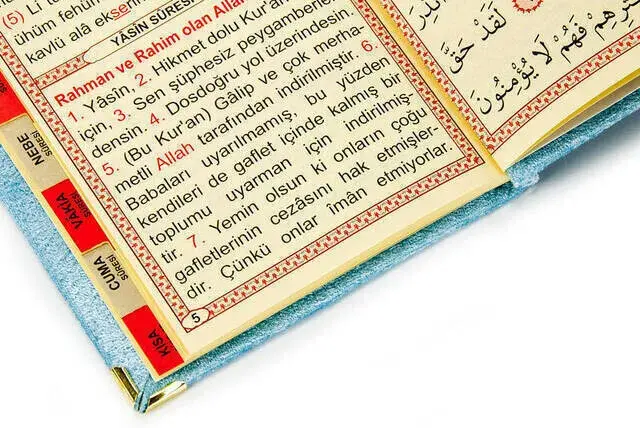 (5) Li t
ühüm fehüm
kavlü alâ ekserih
YÂSÎN SÛRESİ
Rahman ve Rahim olan Allah
1. Yâsîn, 2. Hikmet dolu Kur'an
için, 3. Sen şüphesiz peygamberler
densin. 4. Dosdoğru yol üzerindesin.
5. (Bu Kur'an) Gâlip ve çok merha-
metli Allah tarafından indirilmiştir. 6.
Babaları uyarılmamış, bu yüzden
kendileri de gaflet içinde kalmış bir
toplumu uyarman için indirilmiş-
tir. 7. Yemin olsun ki onların çoğu
gafletlerinin cezâsını hak etmişler-
dir. Çünkü onlar imân etmiyorlar.
5
NEBE SÛRESİ
VÂKIA SÛRESİ
CUMA SÛRESİ
KISA
لَقَدْ حَقَّ
فَهُمْ لَا يُؤْمِنُونَ